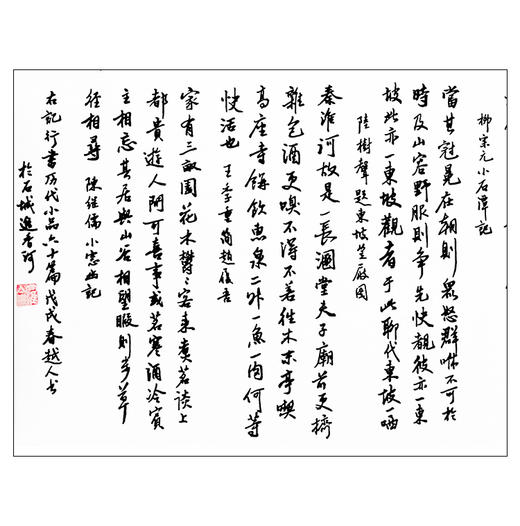 柳宗元小石潭記
當其冠冕在朝則眾怒群咻不可於
時及山容野服則争先快覩彼亦一東
坡此亦一東坡觀者于此聊代東坡一哂
陸樹聲題東坡笠屐圖
秦淮河故是一長溷堂夫子廟前更擠
雜包酒更嗅不得不若往木末亭喫
高座寺餅飲惠泉二升一魚一肉何等
快活也 王季重簡趙履吾
家有三畝園花木鬱〻客來煑茗談上
都貴遊人間可喜事或茗寒酒冷賓
主相忘其居與山谷相望暇則步草
徑相尋 陳繼儒小窗幽記
右記行書歷代小品六十篇戊戌春越人书
於石城